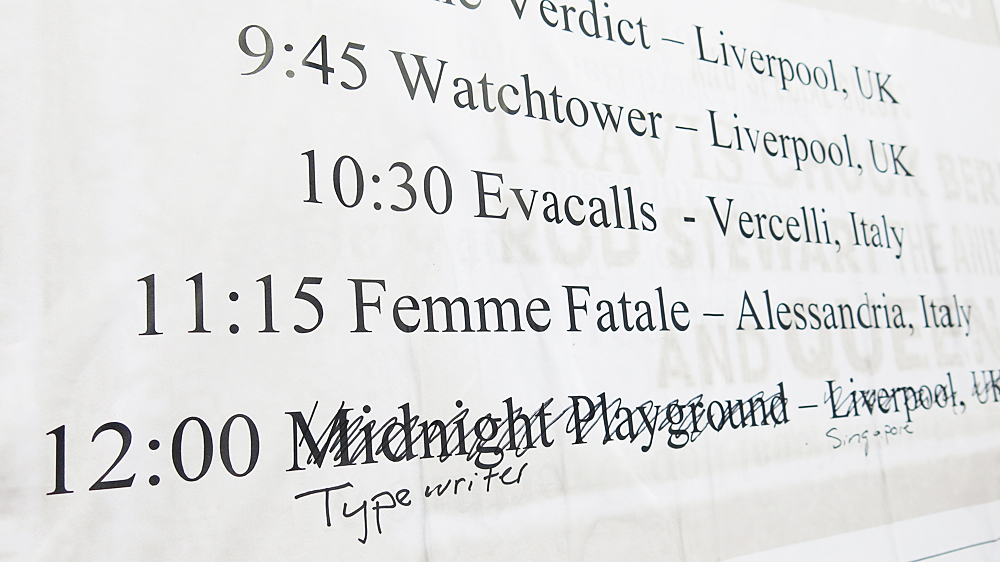 Verdict – Liverpool, UK
9:45 Watchtower – Liverpool, UK
10:30 Evacalls - Vercelli, Italy
11:15 Femme Fatale – Alessandria, Italy
12:00 Midnight Playground – Liverpool, UK
Typewriter Singapore